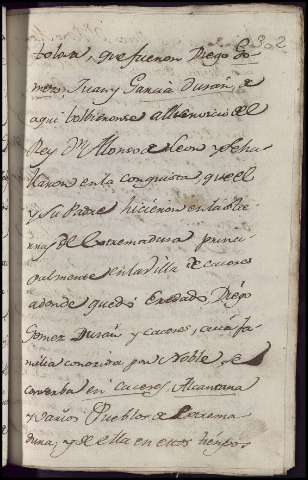 302
tolera, que fueron Diego Go-
mez, Juan, y Garcia Duran, de
aqui bolbieronse al servicio del
Rey Dn. Alonso de Leon y se ha-
llaron en la conquista, que el
y su Padre hicieron en la tie-
rra de Extremadura princi-
palmente en la villa de caceres
adonde quedó Eredado Diego
Gomez Duran y caceres, cuia fa-
milia conozida por Noble se
conserba en caceres, Alcantara
y varios Pueblos de Extrema-
dura, y de ella en estos tiempos